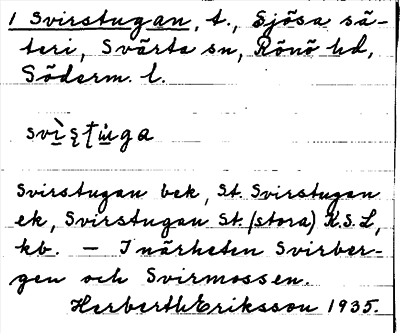 1 Svirstugan, t., Sjösa sä-
teri, Svärta sn, Rönö hd,
Söderm. l.
Svirstugan bek, St. Svirstugan
ek, Svirstugan St. (stora) K.S.L,
kb. — I närheten Svirber-
gen och Svirmossen.
Herberth Eriksson 1935.